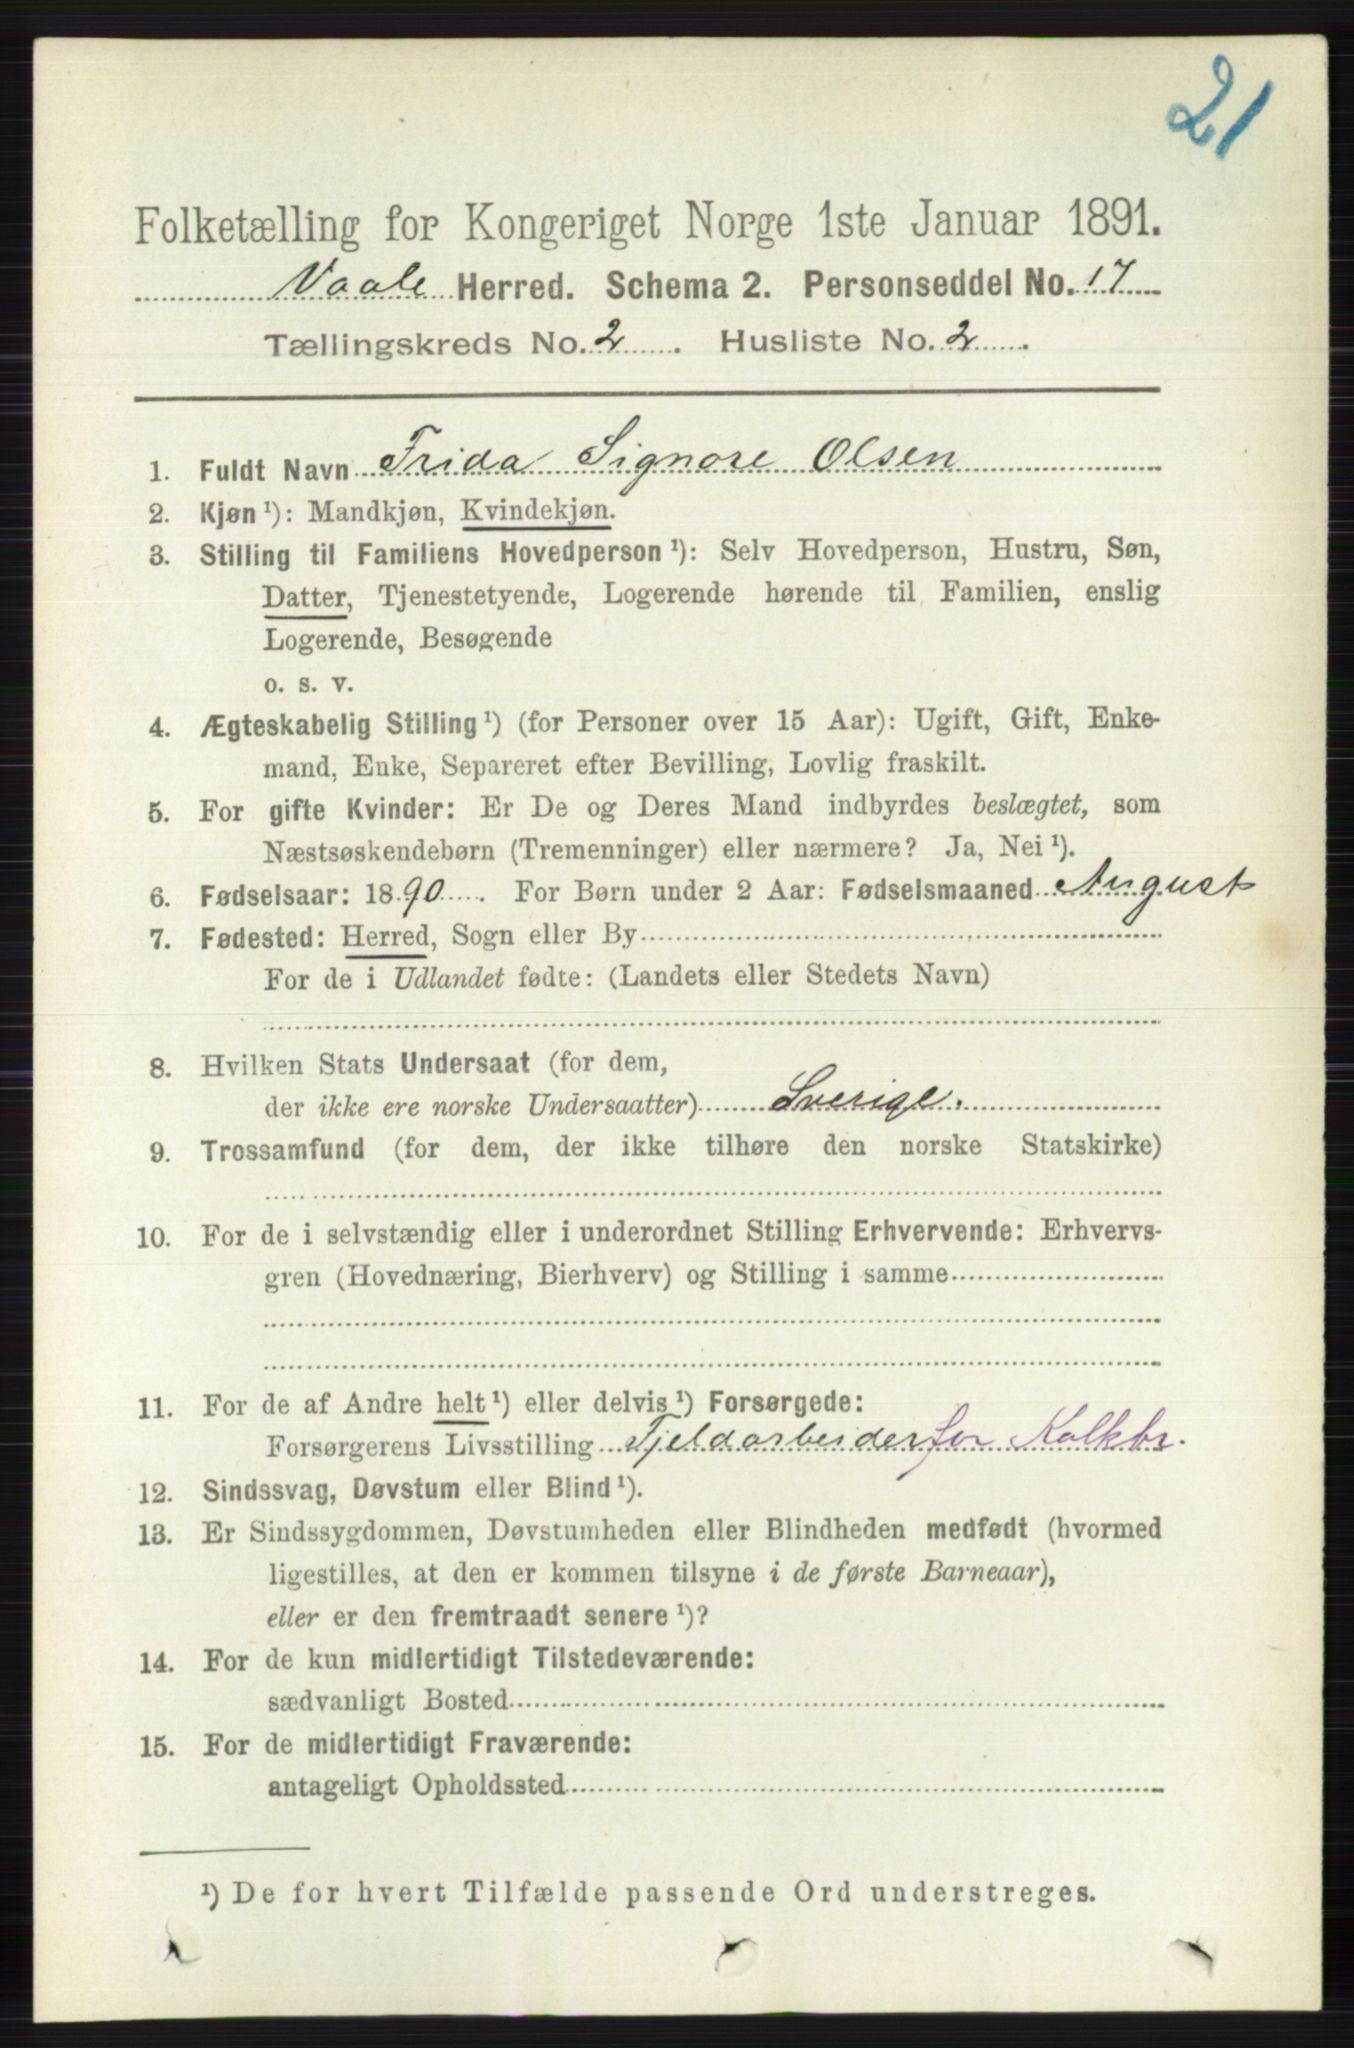 21
Folketælling for Kongeriget Norge 1ste Januar 1891.
Vaale Herred. Schema 2. Personseddel No. 17
Tællingskreds No. 2. Husliste No. 2.
1. Fuldt Navn Frida Signore Olsen
2. Kjøn ¹): Mandkjøn, Kvindekjøn.
3. Stilling til Familiens Hovedperson ¹): Selv Hovedperson, Hustru, Søn,
Datter, Tjenestetyende, Logerende hørende til Familien, enslig
Logerende, Besøgende
o. s. v.
4. Ægteskabelig Stilling ¹) (for Personer over 15 Aar): Ugift, Gift, Enke-
mand, Enke, Separeret efter Bevilling, Lovlig fraskilt.
5. For gifte Kvinder: Er De og Deres Mand indbyrdes beslægtet, som
Næstsøskendebørn (Tremenninger) eller nærmere? Ja, Nei ¹).
6. Fødselsaar: 1890. For Børn under 2 Aar: Fødselsmaaned August
7. Fødested: Herred, Sogn eller By
For de i Udlandet fødte: (Landets eller Stedets Navn)
8. Hvilken Stats Undersaat (for dem,
der ikke ere norske Undersaatter) Sverige.
9. Trossamfund (for dem, der ikke tilhøre den norske Statskirke)
10. For de i selvstændig eller i underordnet Stilling Erhvervende: Erhvervs-
gren (Hovednæring, Bierhverv) og Stilling i samme
11. For de af Andre helt ¹) eller delvis ¹) Forsørgede:
Forsørgerens Livsstilling Fjeldarbeider for Kalkbr.
12. Sindssvag, Døvstum eller Blind ¹).
13. Er Sindssygdommen, Døvstumheden eller Blindheden medfødt (hvormed
ligestilles, at den er kommen tilsyne i de første Barneaar),
eller er den fremtraadt senere ¹)?
14. For de kun midlertidigt Tilstedeværende:
sædvanligt Bosted
15. For de midlertidigt Fraværende:
antageligt Opholdssted
¹) De for hvert Tilfælde passende Ord understreges.